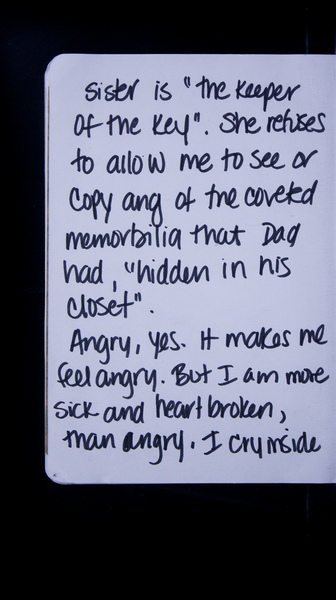 sister is "the keeper
of the key". She refuses
to allow me to see or
copy ang of the coveted
memorbilia that Dad
had, "hidden in his
closet".
Angry, yes. It makes me
feel angry. But I am more
sick and heartbroken,
than angry. I cry inside